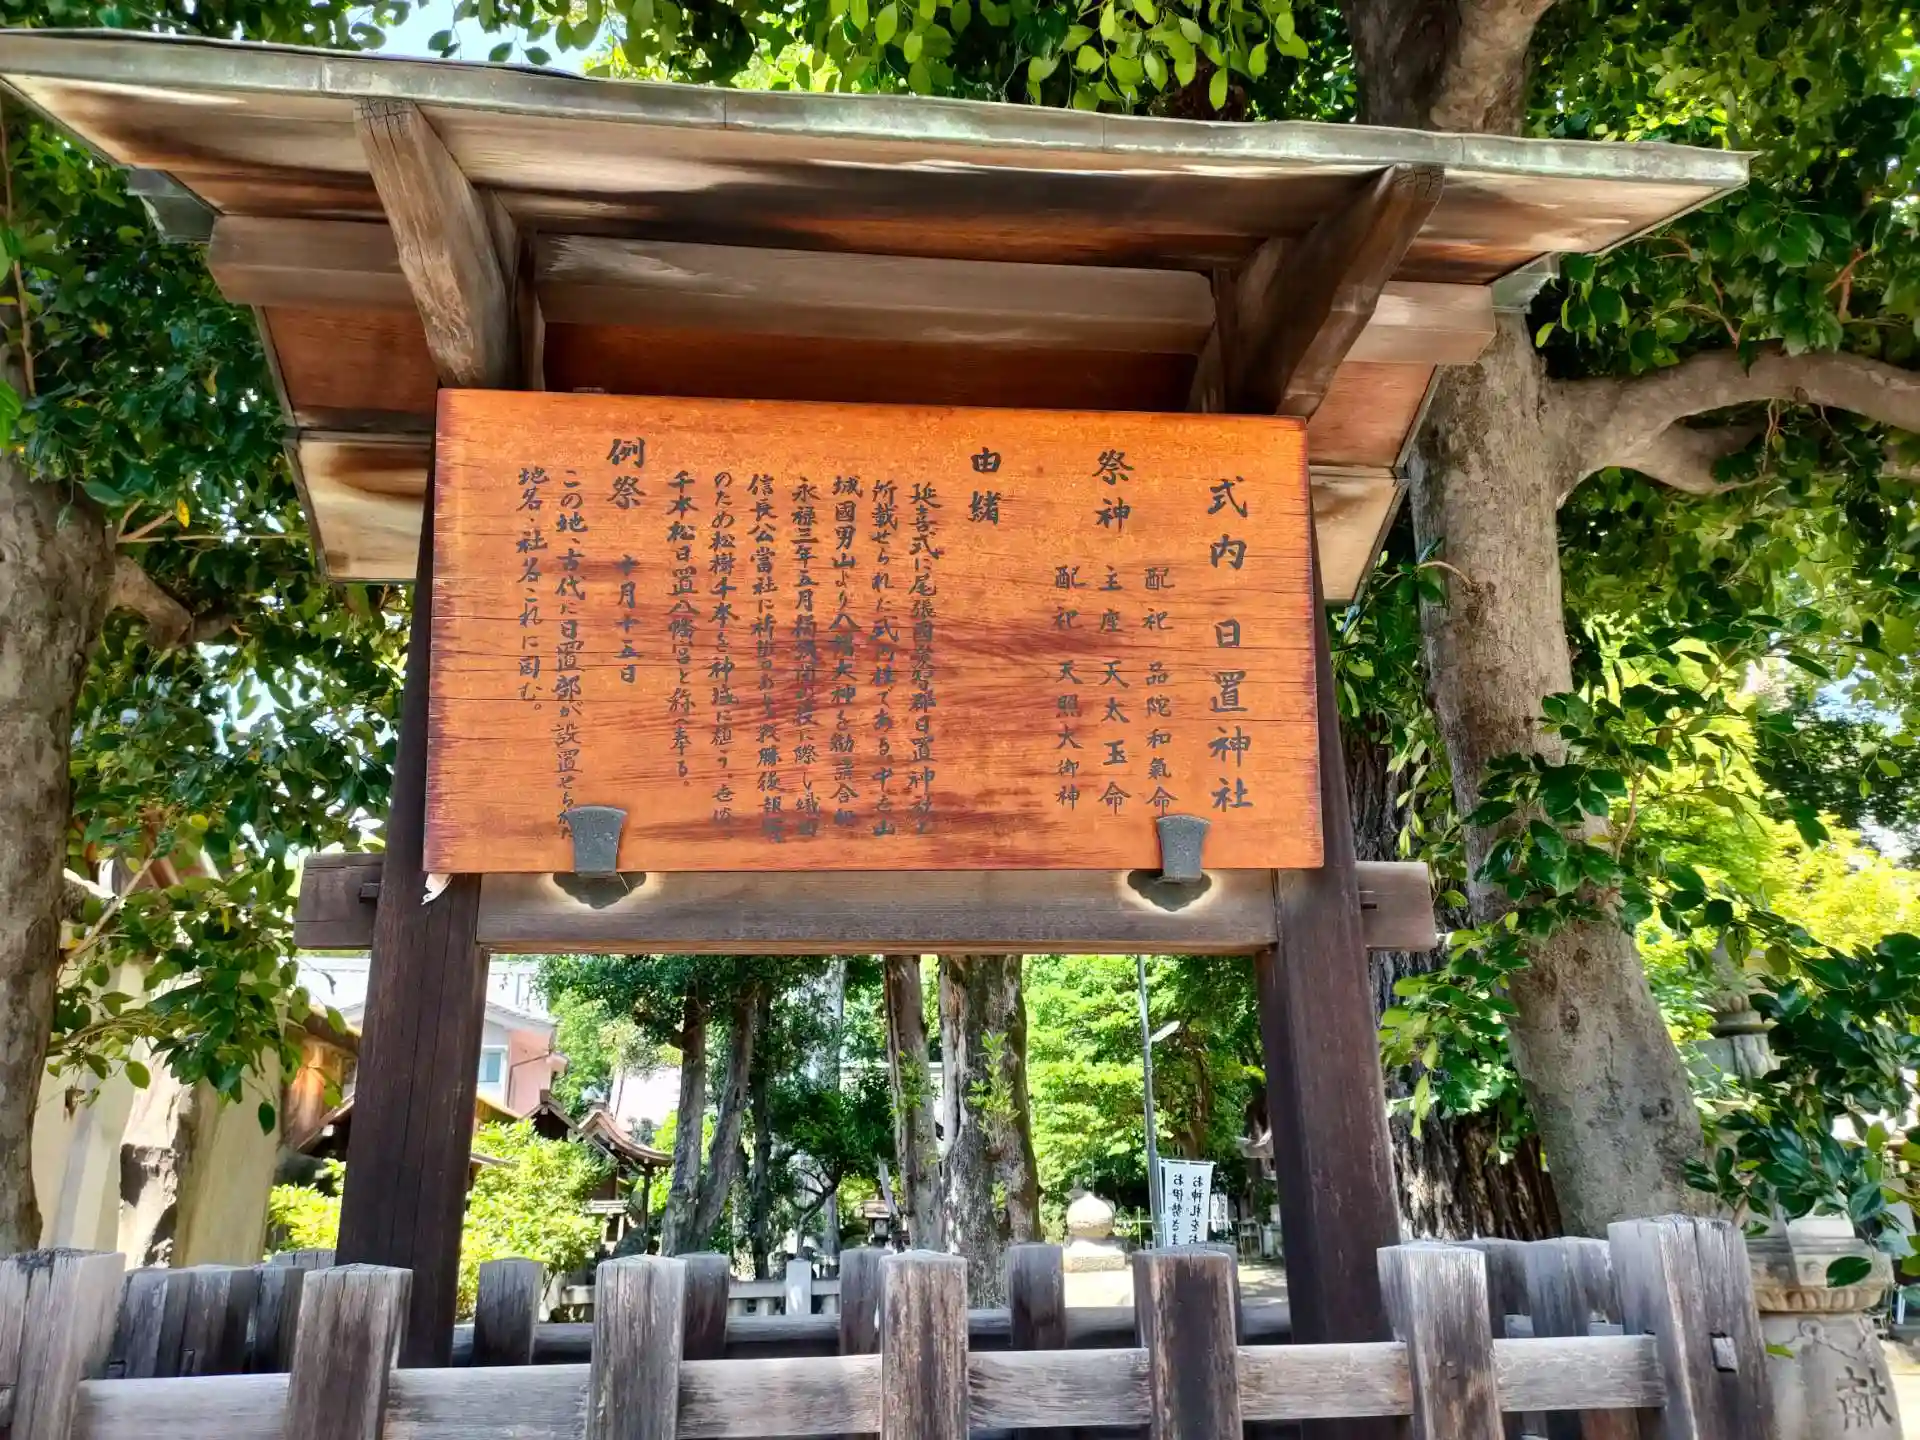 式内 日置神社
配祀 品陀和氣命
祭神 主座 天太玉命
配祀 天照大御神
由緒
延喜式に尾張國愛智郡日置神社と
所載せられた式内社である。中古山
城國男山より八幡大神を勧請合祀
永禄三年五月桶狭間の役に際し織田
信長公當社に祈誓のあり戦勝後報賽
のため松樹千本を神域に植
千本松日置八幡宮と称へ奉る。
例祭 十月十五日
この地、古代に日置部が設置せられた
地名・社名これに因む。
お神札をお
お伊勢さま
献